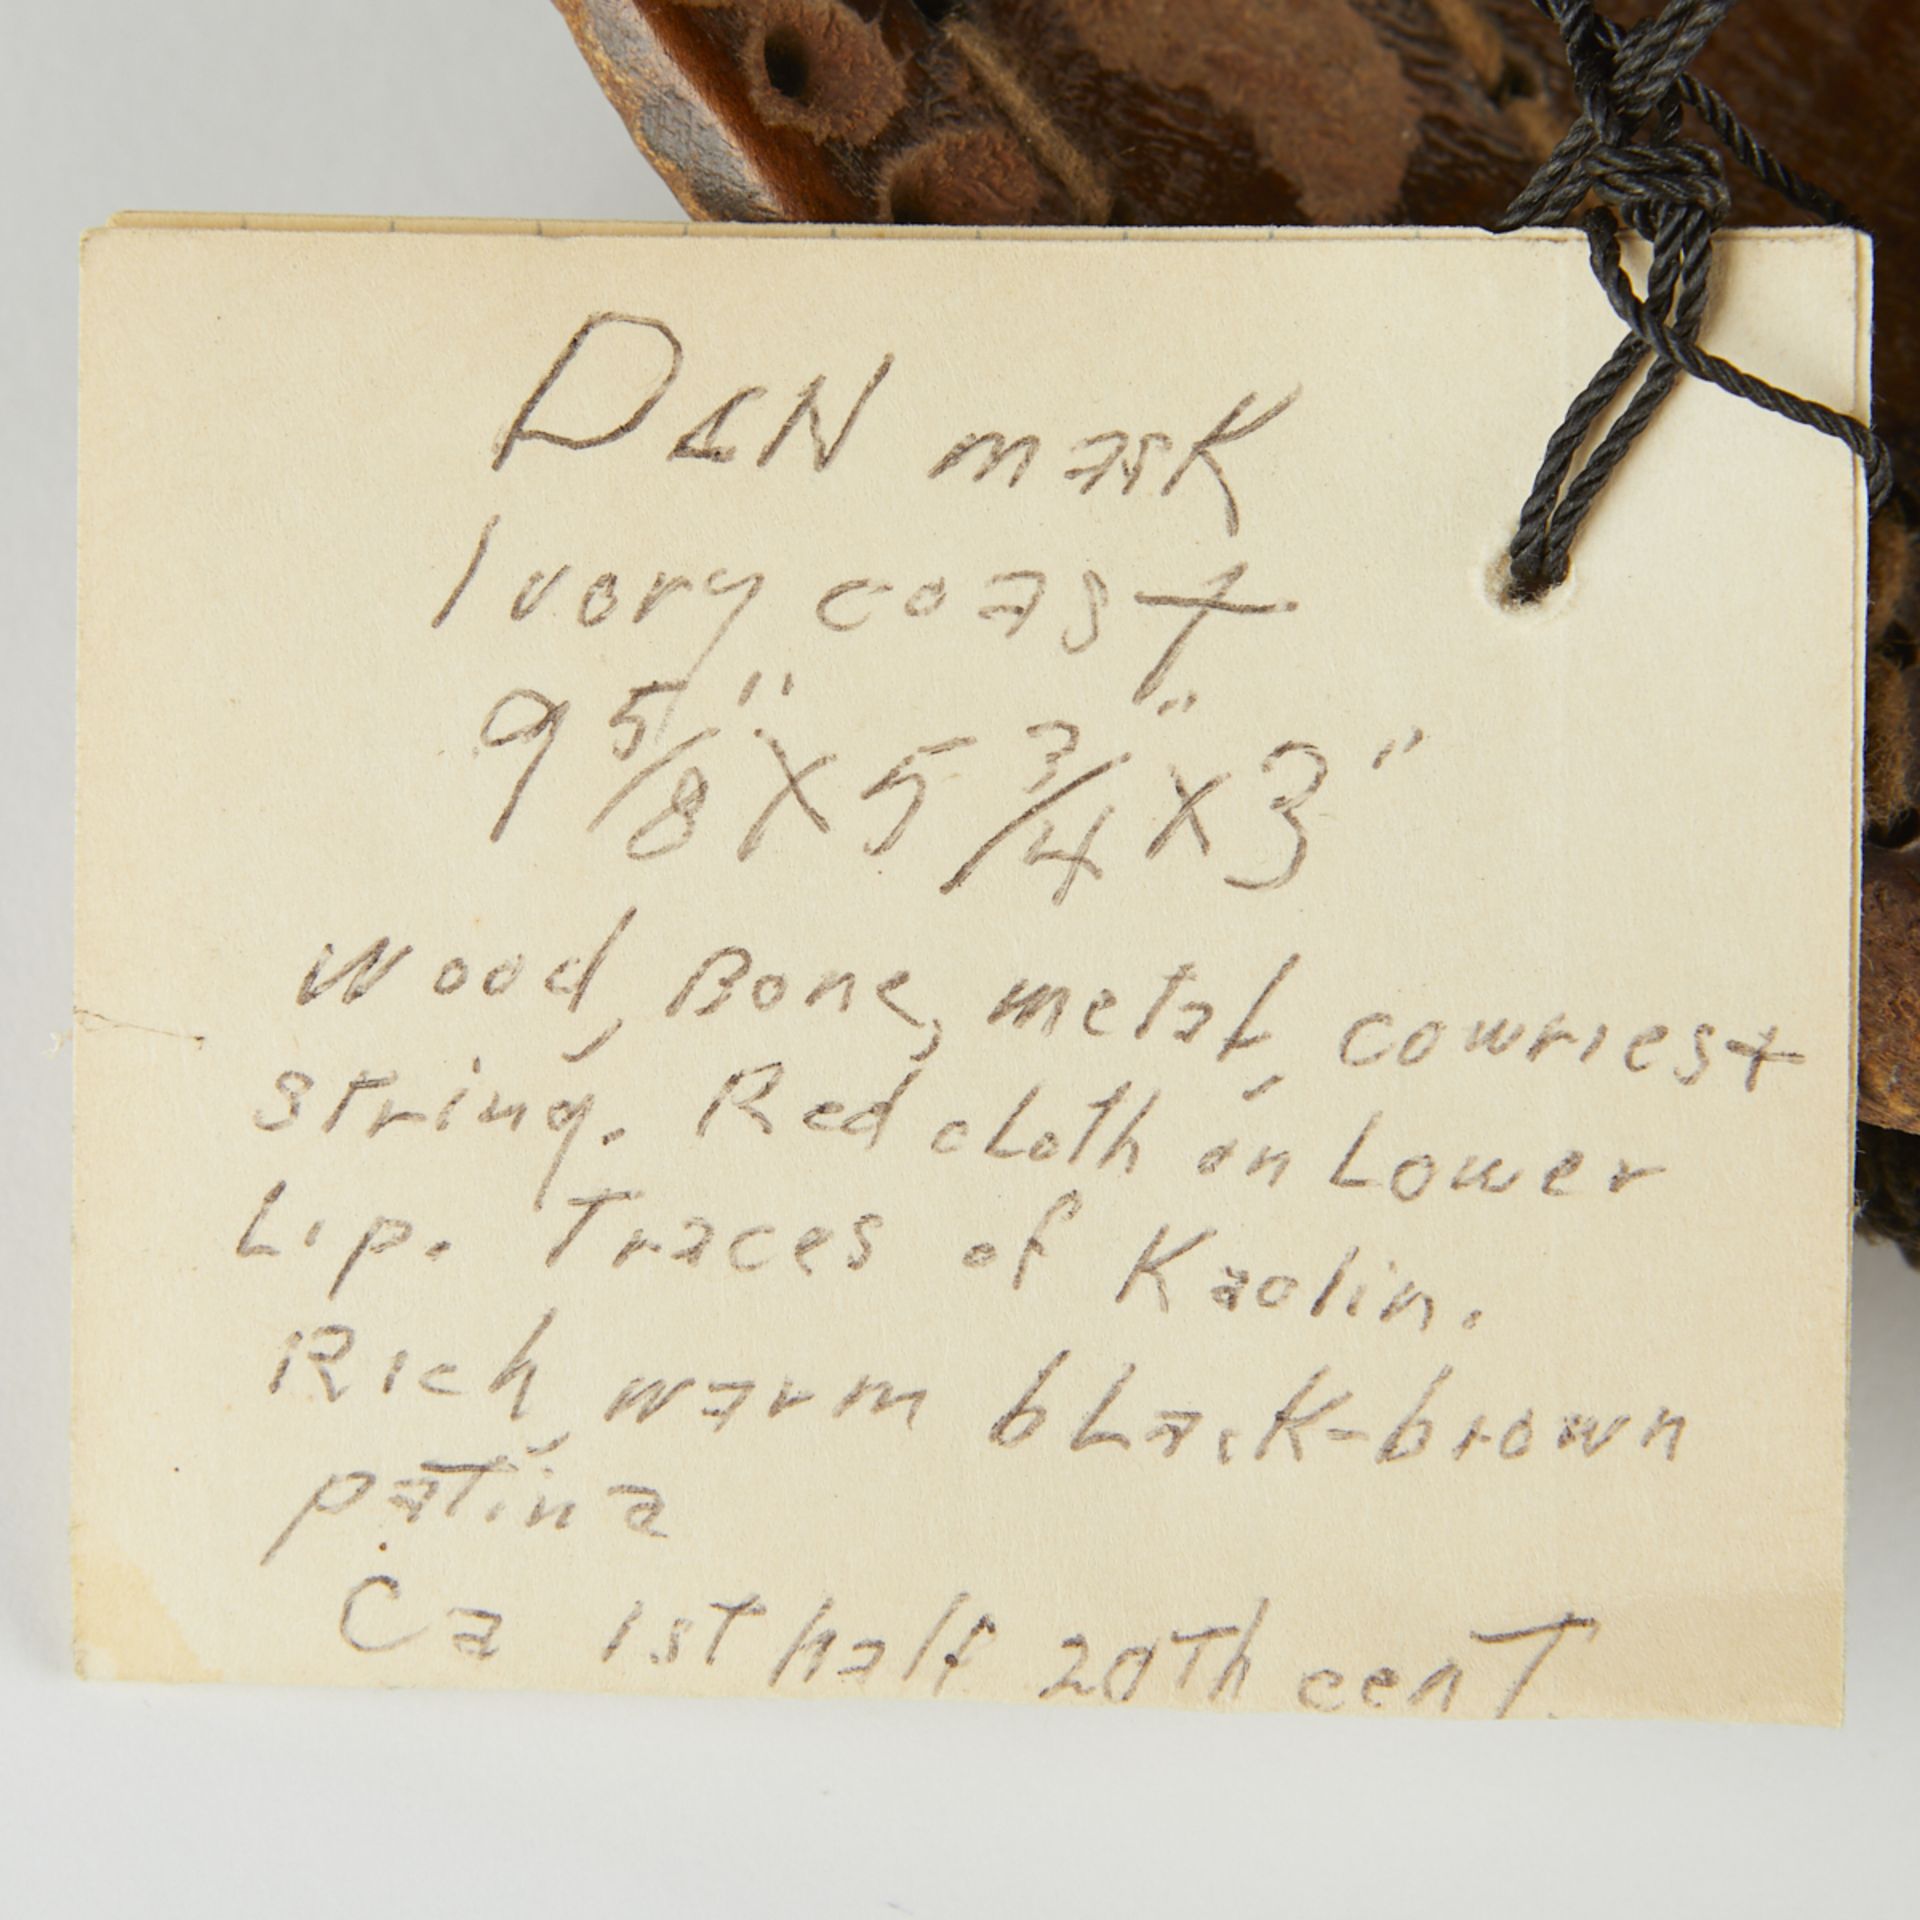 DAN mask
Ivory coast
9 5/8" X 5 3/4" X 3"
Wood, Bone, metal, cowries +
string. Red cloth on Lower
Lip. Traces of Kaolin.
Rich, warm bLack-brown
patina
Ca 1st half 20Th cenT.